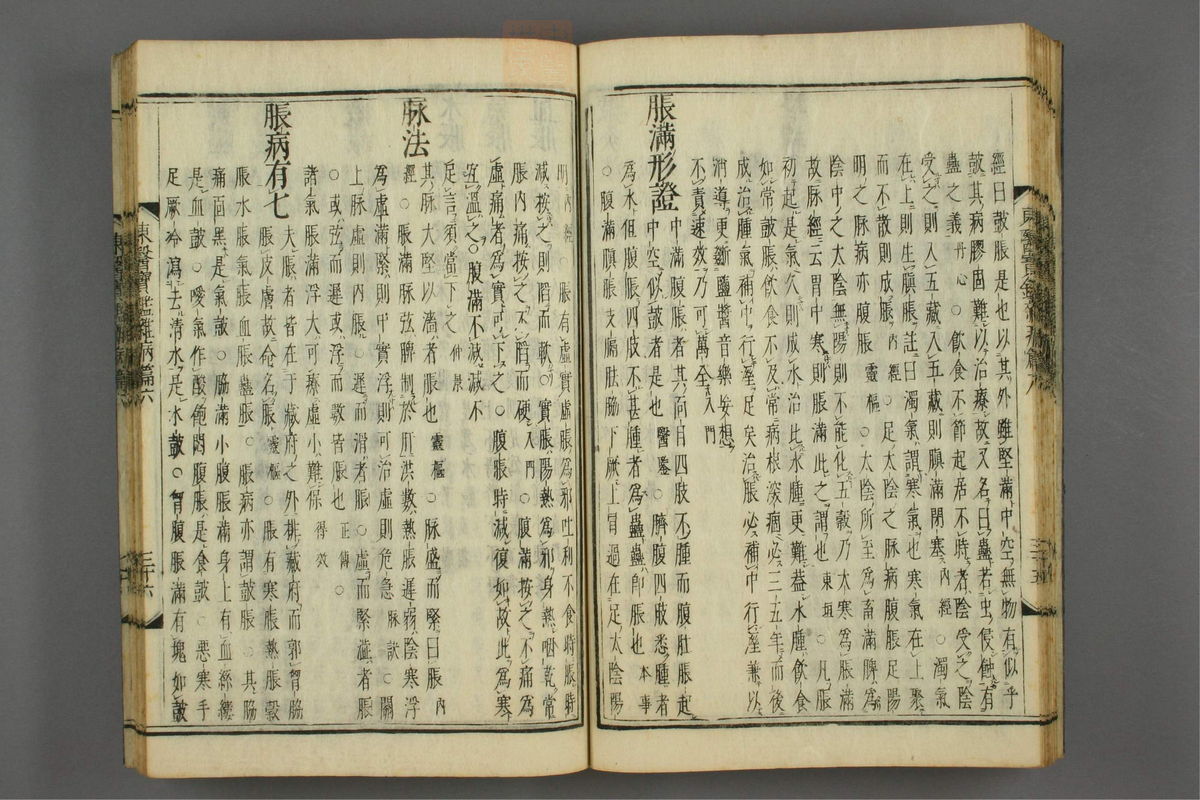 經曰鼓脹是也以其外雖堅滿中空無物有似乎
鼓其病膠固難以治療故又名曰蠱若虫侵蝕有
蠱之義丹心○飲食不節起居不時者陰受之陰
受之則入五藏入五藏則䐜滿閉塞內經○濁氣
在上則生䐜脹註曰濁氣謂寒氣也寒氣在上聚
而不散則成脹內經○足太陰之脉病腹脹足陽
明之脉病亦腹脹靈樞○太陰所至爲畜滿脾爲
陰中之太陰無陽則不能化五穀乃大寒爲脹滿
故脉經云胃中寒則脹滿此之謂也東垣○凡脹
初起是氣久則成水治比水腫更難盖水腫飲食
如常鼓脹飲食不及常病根深痼必三五年而後
成治腫氣補中行濕足矣治脹必補中行濕兼以
消導更斷鹽醬音樂妄想
不責速效乃可萬全入門
脹滿形證
中滿腹脹者其面目四肢不腫而腹肚脹起
中空似鼓者是也醫鑑○臍腹四肢悉腫者
爲水但腹脹四肢不甚腫者爲蠱蠱卽脹也本事
○腹滿䐜脹支膈胠脇下厥上冒過在足太陰陽
明內經○脹有虛實虛脹爲邪吐利不食時脹時
減按之則陷而軟○實脹陽熱爲邪身熱咽乾常
脹內痛按之不陷而硬入門○腹滿按之不痛爲
虛痛者爲實可下之○腹脹時減復如故此爲寒
宜溫之○腹滿不減減不
足言須當下之仲景
脉法
其脉大堅以濇者脹也靈樞○脉盛而緊曰脹內
經○脹滿脉弦脾制於肝洪數熱脹遲弱陰寒浮
爲虛滿緊則中實浮則可治虛則危急脉訣○關
上脉虛則內脹○遲而滑者脹○虛而緊濇者脹
○或弦而遲或浮而數皆脹也正傳○
諸氣脹滿浮大可療虛小難保得效
脹病有七
夫脹者皆在于藏府之外排藏府而郭胷脇
脹皮膚故命名脹靈樞○脹有寒脹熱脹穀
脹水脹氣脹血脹蠱脹○脹病亦謂鼓脹○其脇
痛面黑是氣鼓○脇滿小腹脹滿身上有血絲纏
是血鼓○噯氣作酸飽悶腹脹是食鼓○惡寒手
足厥冷瀉去清水是水鼓○胷腹脹滿有塊如鼓
東醫寶鑑雜病篇六
三十六